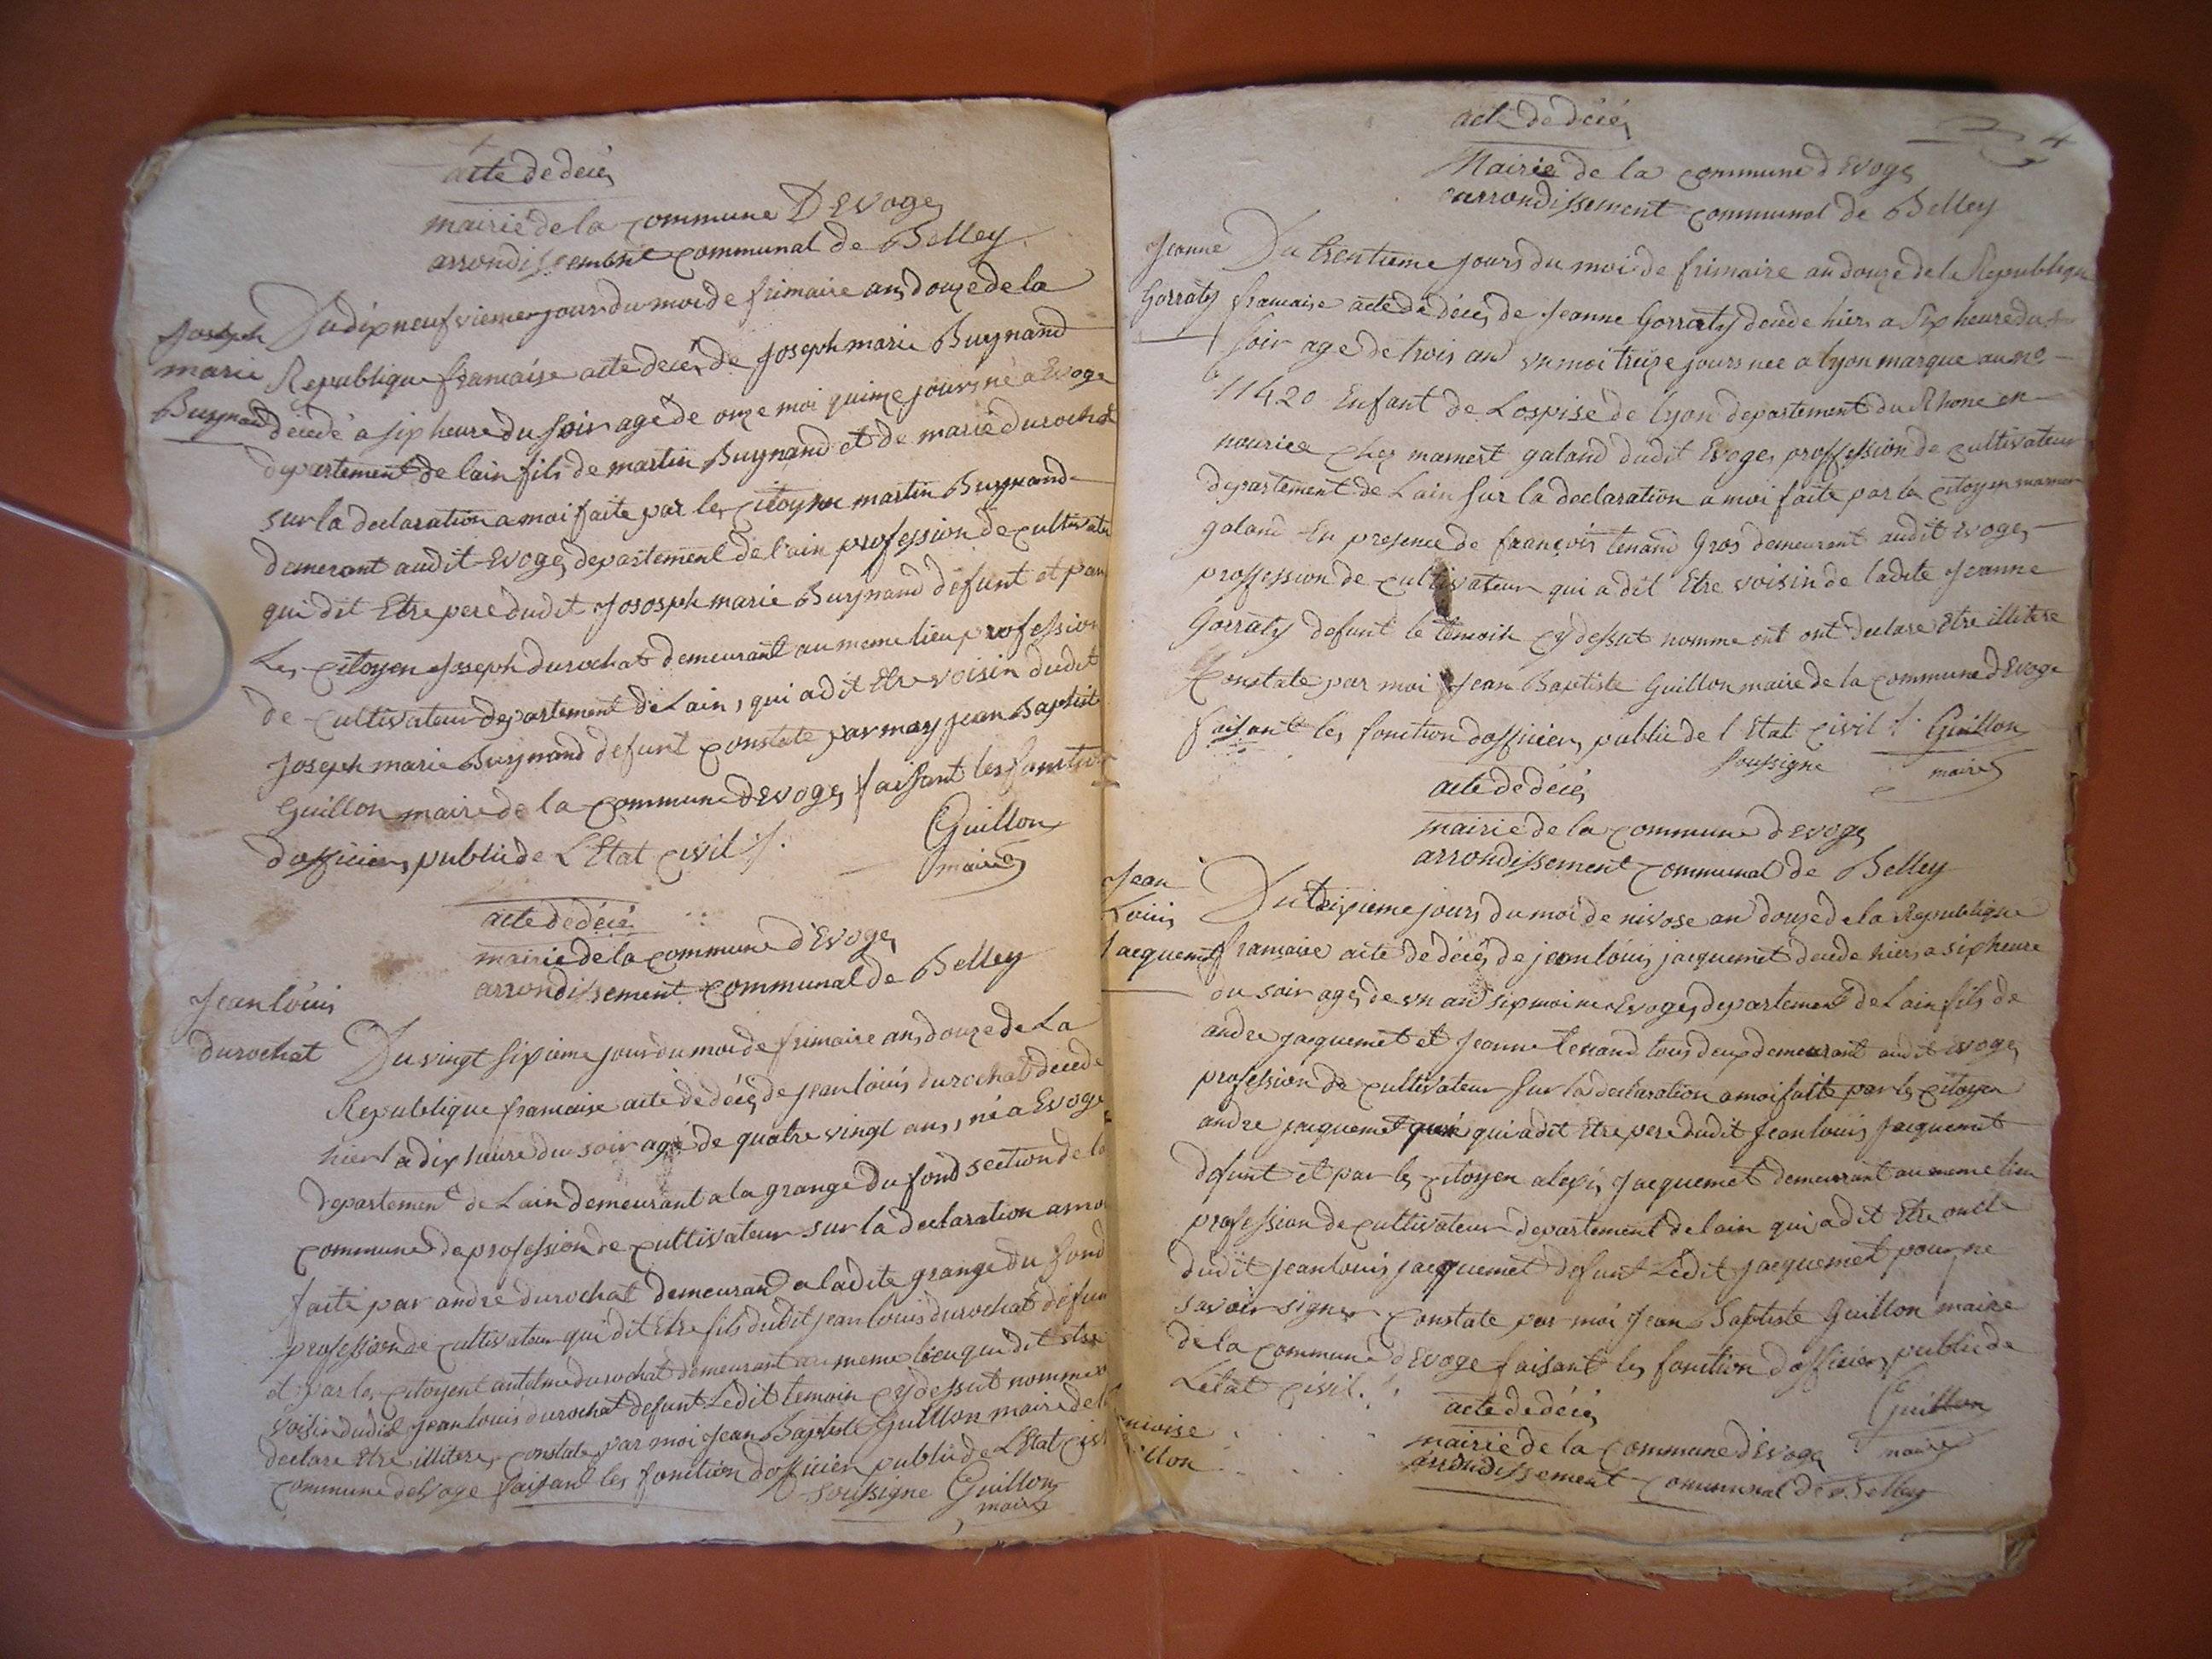 acte de décés
mairie de la commune D Evoges
arrondissement communal de Belley
Joseph
marie
Buynand
Du dix neufvieme jours du moi de frimaire an douze de la
Republique francaise acte décés de Joseph marie Buynand
décédé a six heure du soir age de onze moi quinze jours né a Evoge
departement de lain fils de martin Buynand et de marie durochat
sur la declaration a moi faite par les citoyen martin Buynand
demerant audit Evoges departement de l'ain profession de cultivateu
qui dit Etre pere dudit Jososph marie Buynand défunt et par
Les citoyen Joseph durochat demeurant au meme lieu profession
de cultivateur departement de Lain, qui a dit Etre voisin dudit
Joseph marie Buynand defunt constaté par moy jean Baptiste
Guillon maire de la commune d Evoges faissant les fonction
dofficiers public de L Etat civil ./.
Guillon
maire
acte dé décés
mairie de la commune d'Evoges
arrondissement communal de Belley
Jean louis
durochat
Du vingt sixieme jour du moi de frimaire an douze de La
Republique francaise acte de décés de jean louis durochat décédé
hier a dix heure du soir agé de quatre vingt ans, né a Evoge
departement de Lain demeurant a la grange du fond section de la
commune de profession de cultivateur sur la declaration a moi
faite par andré durochat demeurand a ladite grange du fond
profession de cultivateur qui dit Etre fils dudit jean louis durochat défun
et par les citoyent antelme durochat demeurant au meme lieu qui dit etre
voisin dudit jean louis durochat defunt Ledit temoin cy dessut nommé
declare Etre illitere, constate par moi Jean Baptiste Guillon maire de la
commune d'evoge faisant les fonction dofficier public de L Etat civi
soussigne Guillon
maire
acte de décés
4
Mairie de la commune d Evoges
arrondissement communal de Belley
Jeanne
Gorraty
Du trentieme jours du moi de frimaire an douze de la Republique
francaise acte de décés de Jeanne Gorraty décédé hiers a six heure du
soir age de trois an un moi treize jours née a lyon marque au no
11420 Enfant de Lospise de lyon departement du Rhone en
nourice chez mamert galand dudit Evoges proffession de cultivateur
departement de Lain sur la declaration a moi faite par le citoyen mamer
galand En presence de françois tenand Gros demeurant audit Evoges
proffession de cultivateur qui a dit Etre voisin de ladite Jeanne
Gorraty defunt le temoin cy dessut nomme ont declare Etre illitere
Constate par moi Jean Baptiste Guillon maire de la commune d Evoge
faisant les fonction dofficiers public de l Etat civil ./. Guillon
soussigne
maire
acte de décés
mairie de la commune d evoges
arrondissement communal de Belley
Jean
Louis
Jacquemet
Du troisieme jours du moi de nivose an douze de la Republique
francaise acte de décés de jean louis jacquemet décédé hiers a six heure
du soir ages de un an six moi né a Evoges departement de Lain fils de
andre jacquemet et Jeanne tenand tous deux demeurant audit Evoges
profession de cultivateur sur la declaration a moi faite par les citoyen
andre jacquemet qui a dit Etre pere dudit jean louis jacquemet
defunt et par les citoyen alexis Jacquemet demeurrant au meme lieu
profession de cultivateur departement de lain qui a dit Etre oncle
dudit jean louis jacquemet defunt Ledit jacquemet pour ne
savoir signer constate par moi Jean Baptiste Guillon maire
de la commune d Evoge faisant les fonction dofficiers public de
Letat civil ./.
Guillon
maire
acte de décés
mairie de la commune d'Evoge
arrondissement communal de Belley